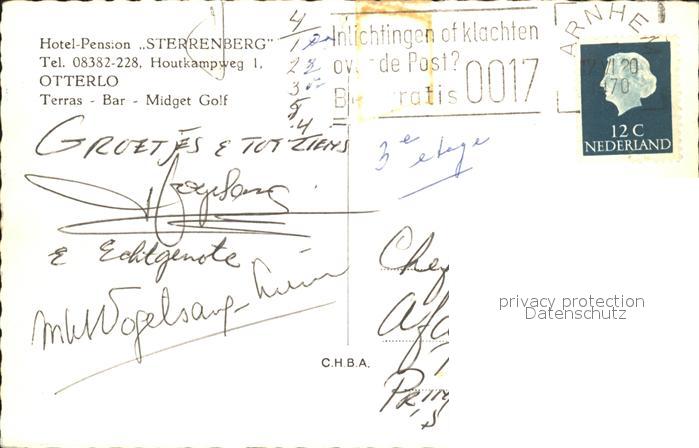 Hotel-Pension „STERRENBERG”
Tel. 08382-228, Houtkampweg 1,
OTTERLO
Terras - Bar - Midget Golf
Inlichtingen of klachten
over de Post?
Bel gratis 0017
ARNHEM
12 C
NEDERLAND
GROETJES & TOT ZIENS
Vogelsang
& Echtgenote
Vogelsang-
3e etage
C.H.B.A.
privacy protection
Datenschutz